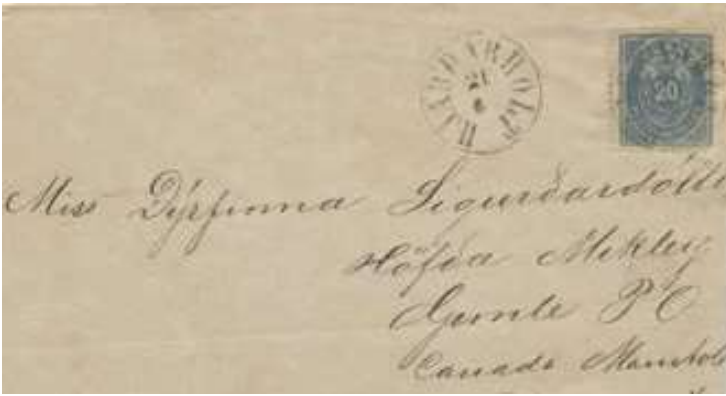 HJARDARHOLT
21
6
20
Miss Dýrfinna Sigurðardótt
Höfða Mikley
Gimle P O
Canada Manitob